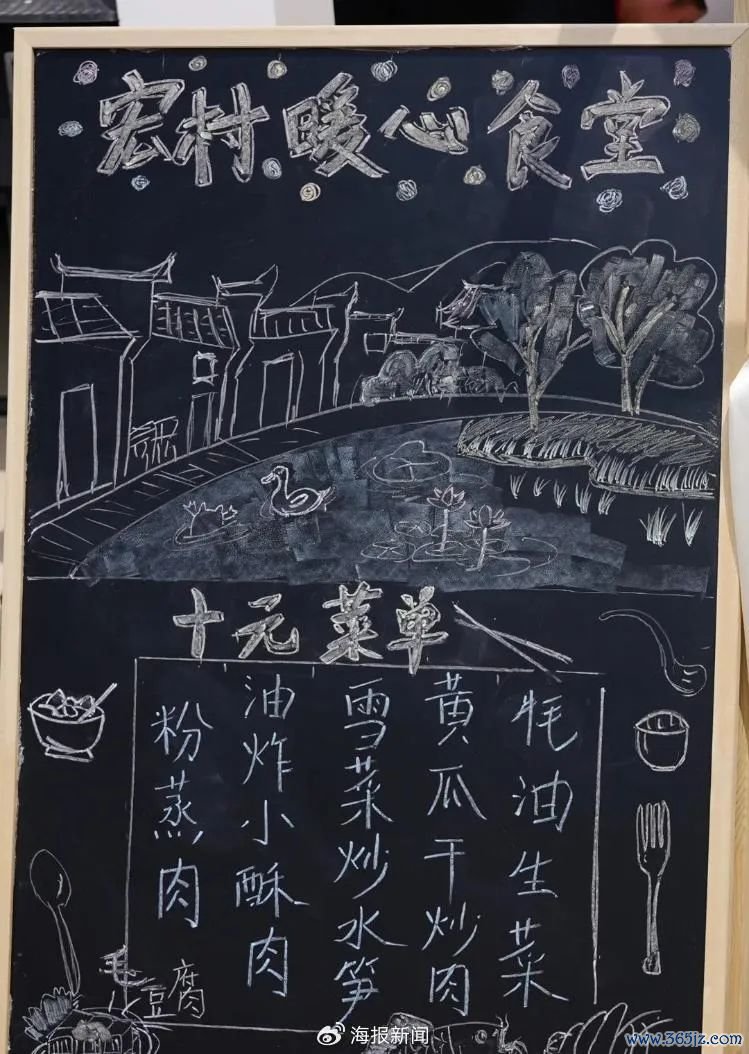 宏村暖心食堂
十元菜单
牦油生菜
黄瓜干炒肉
雪菜炒水笋
油炸小酥肉
粉蒸肉
毛豆腐
海报新闻
www.365jz.com